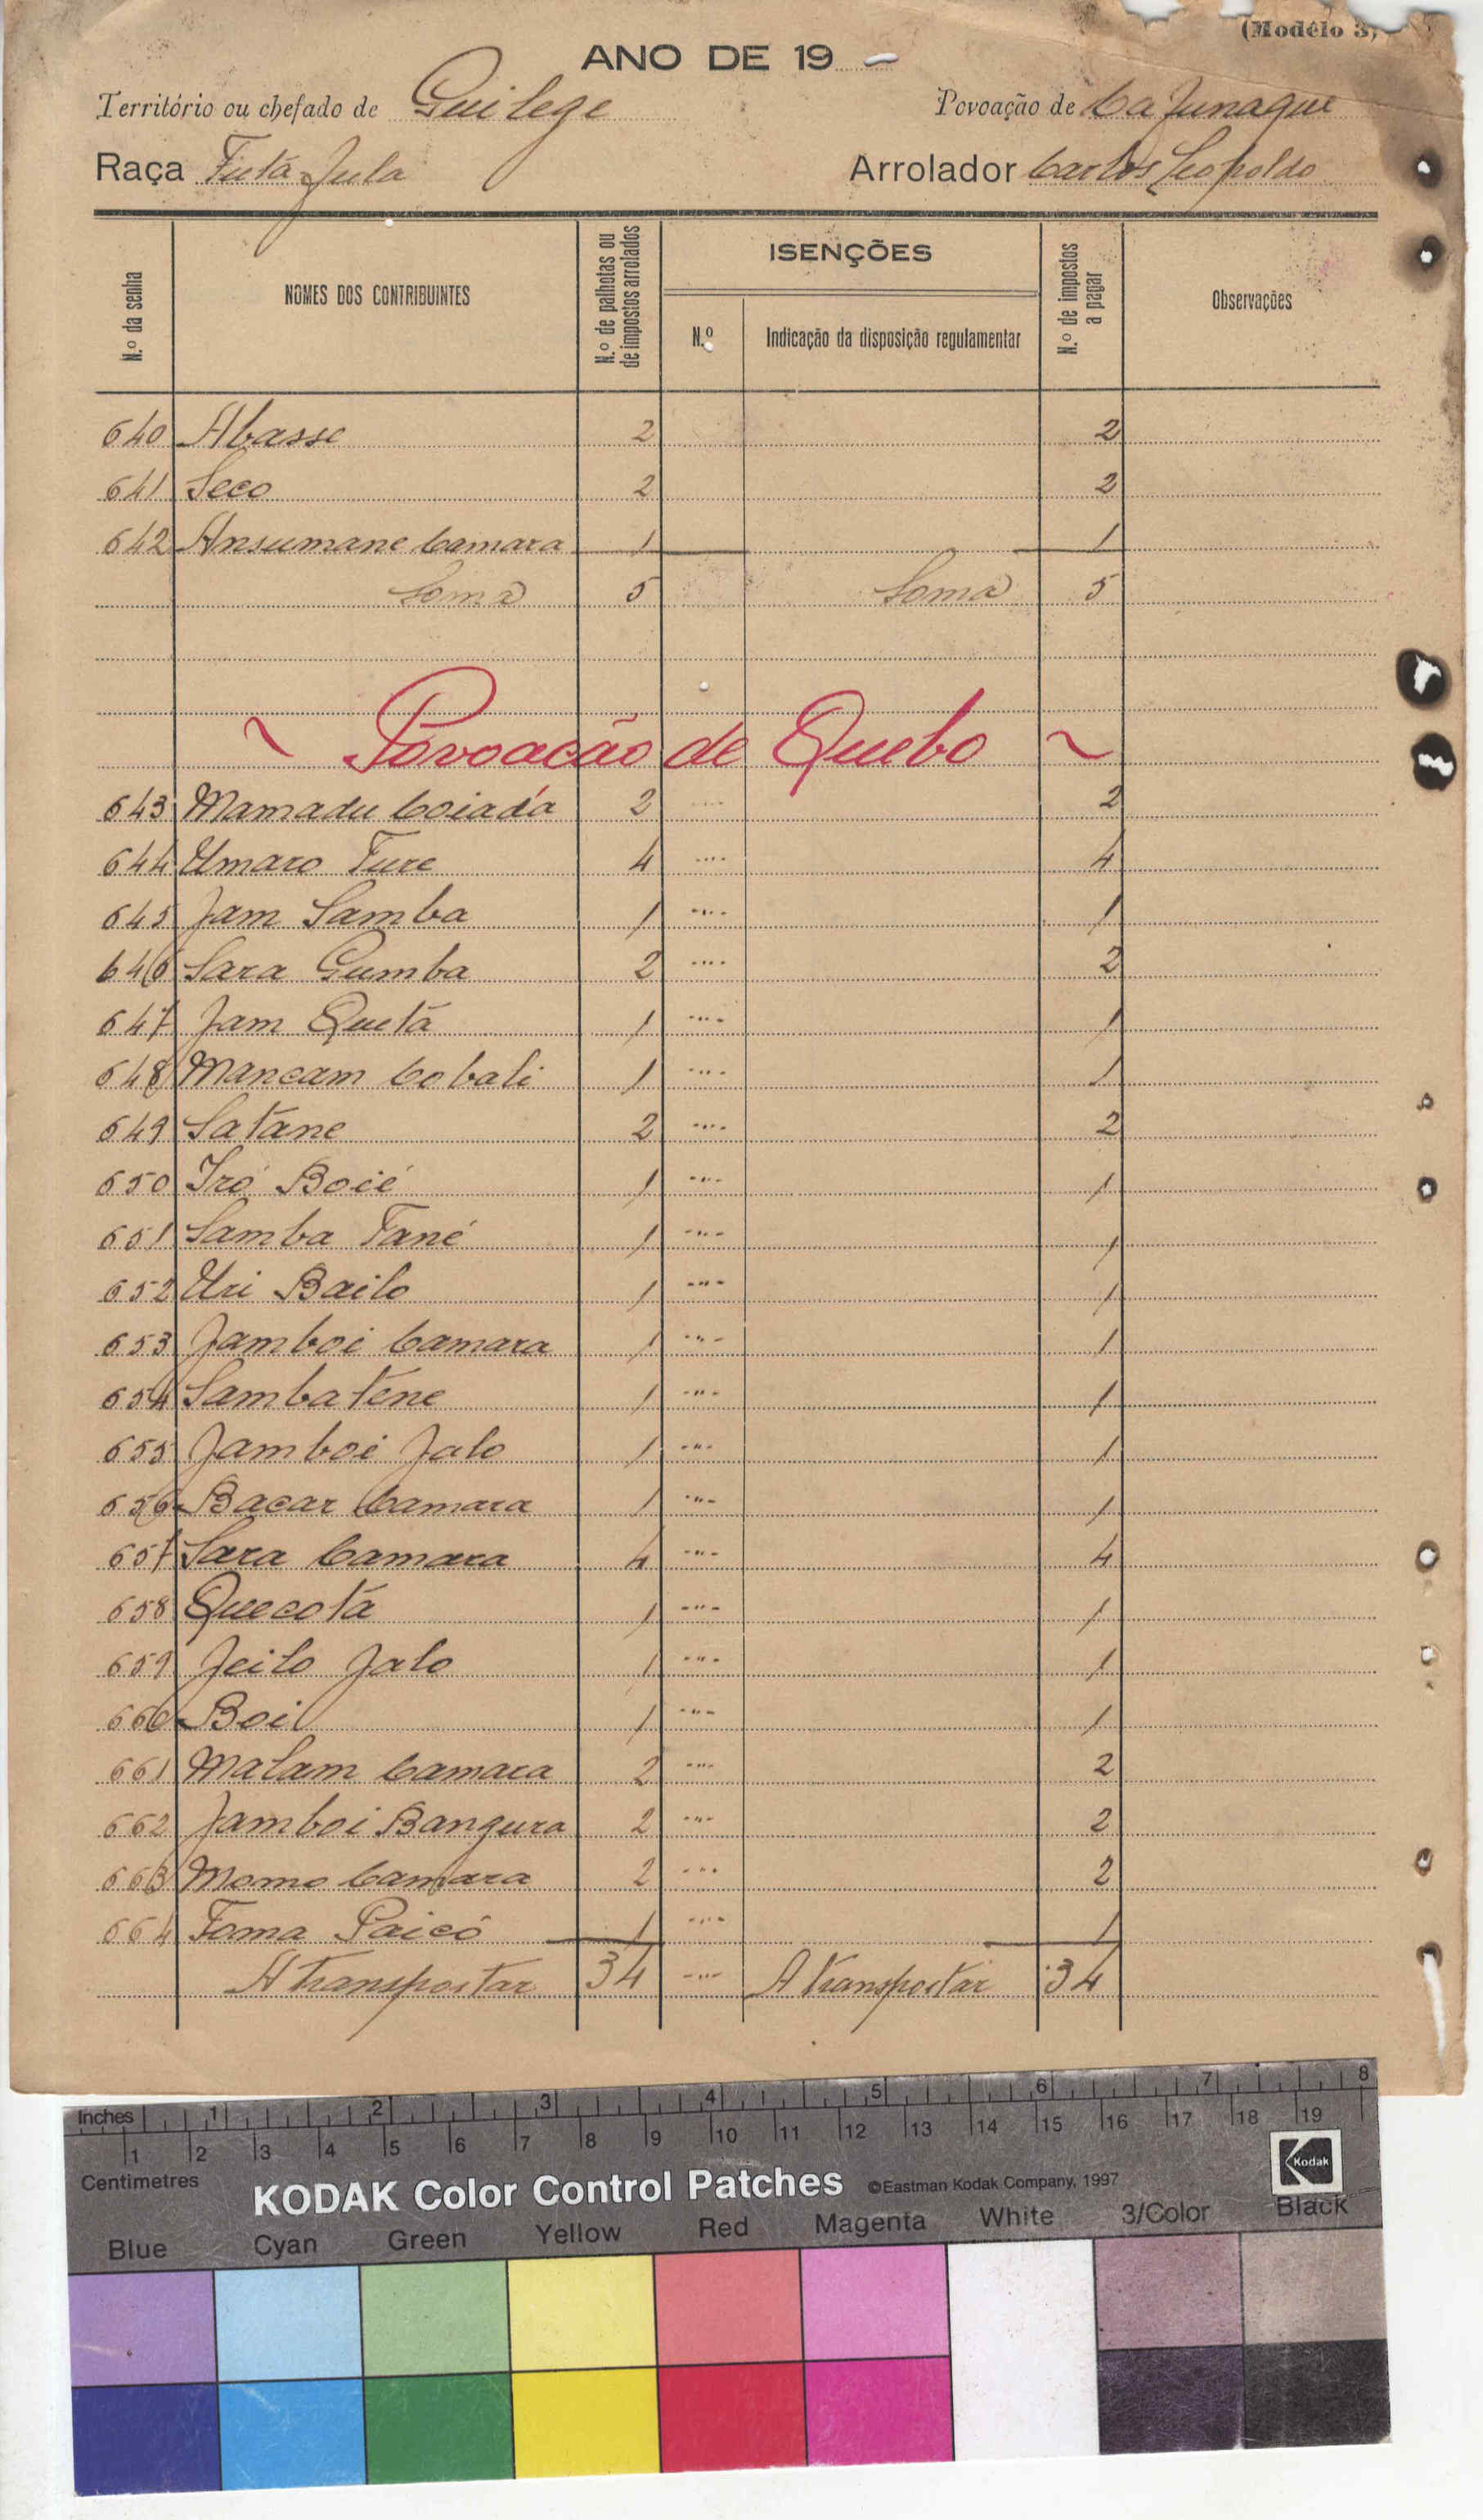 (Modêlo 3)
ANO DE 19 -
Território ou chefado de Guilege Povoação de Cafunaque
Raça Futá-Jula Arrolador Carlos Leopoldo
N.º da senha NOMES DOS CONTRIBUINTES N.º de palhotas ou de impostos arrolados ISENÇÕES N.º de impostos a pagar Observações
N.º Indicação da disposição regulamentar
640 Abasse 2 2
641 Seco 2 2
642 Ansumane Camara 1 1
Soma 5 Soma 5
~ Povoacão de Quebo ~
643 Mamadu Coiadá 2 .... 2
644 Umaro Ture 4 .... 4
645 Jam Samba 1 .... 1
646 Sara Gumba 2 .... 2
647 Jam Quetá 1 .... 1
648 Mancam Cobali 1 .... 1
649 Satáne 2 .... 2
650 Iró Boié 1 .... 1
651 Samba Tané 1 .... 1
652 Uri Bailo 1 .... 1
653 Jamboi Camara 1 .... 1
654 Sambaténe 1 .... 1
655 Jamboi Jalo 1 .... 1
656 Bacar Camara 1 .... 1
657 Sara Camara 4 .... 4
658 Quecotá 1 .... 1
659 Jeilo Jalo 1 .... 1
660 Boi 1 .... 1
661 Malam Camara 2 .... 2
662 Jamboi Bangura 2 .... 2
663 Momo Camara 2 .... 2
664 Foma Paicó 1 .... 1
A transportar 34 .... A transportar 34
Inches 1 2 3 4 5 6 7 8
1 2 3 4 5 6 7 8 9 10 11 12 13 14 15 16 17 18 19
Centimetres
KODAK Color Control Patches ©Eastman Kodak Company, 1997 Kodak
Blue Cyan Green Yellow Red Magenta White 3/Color Black